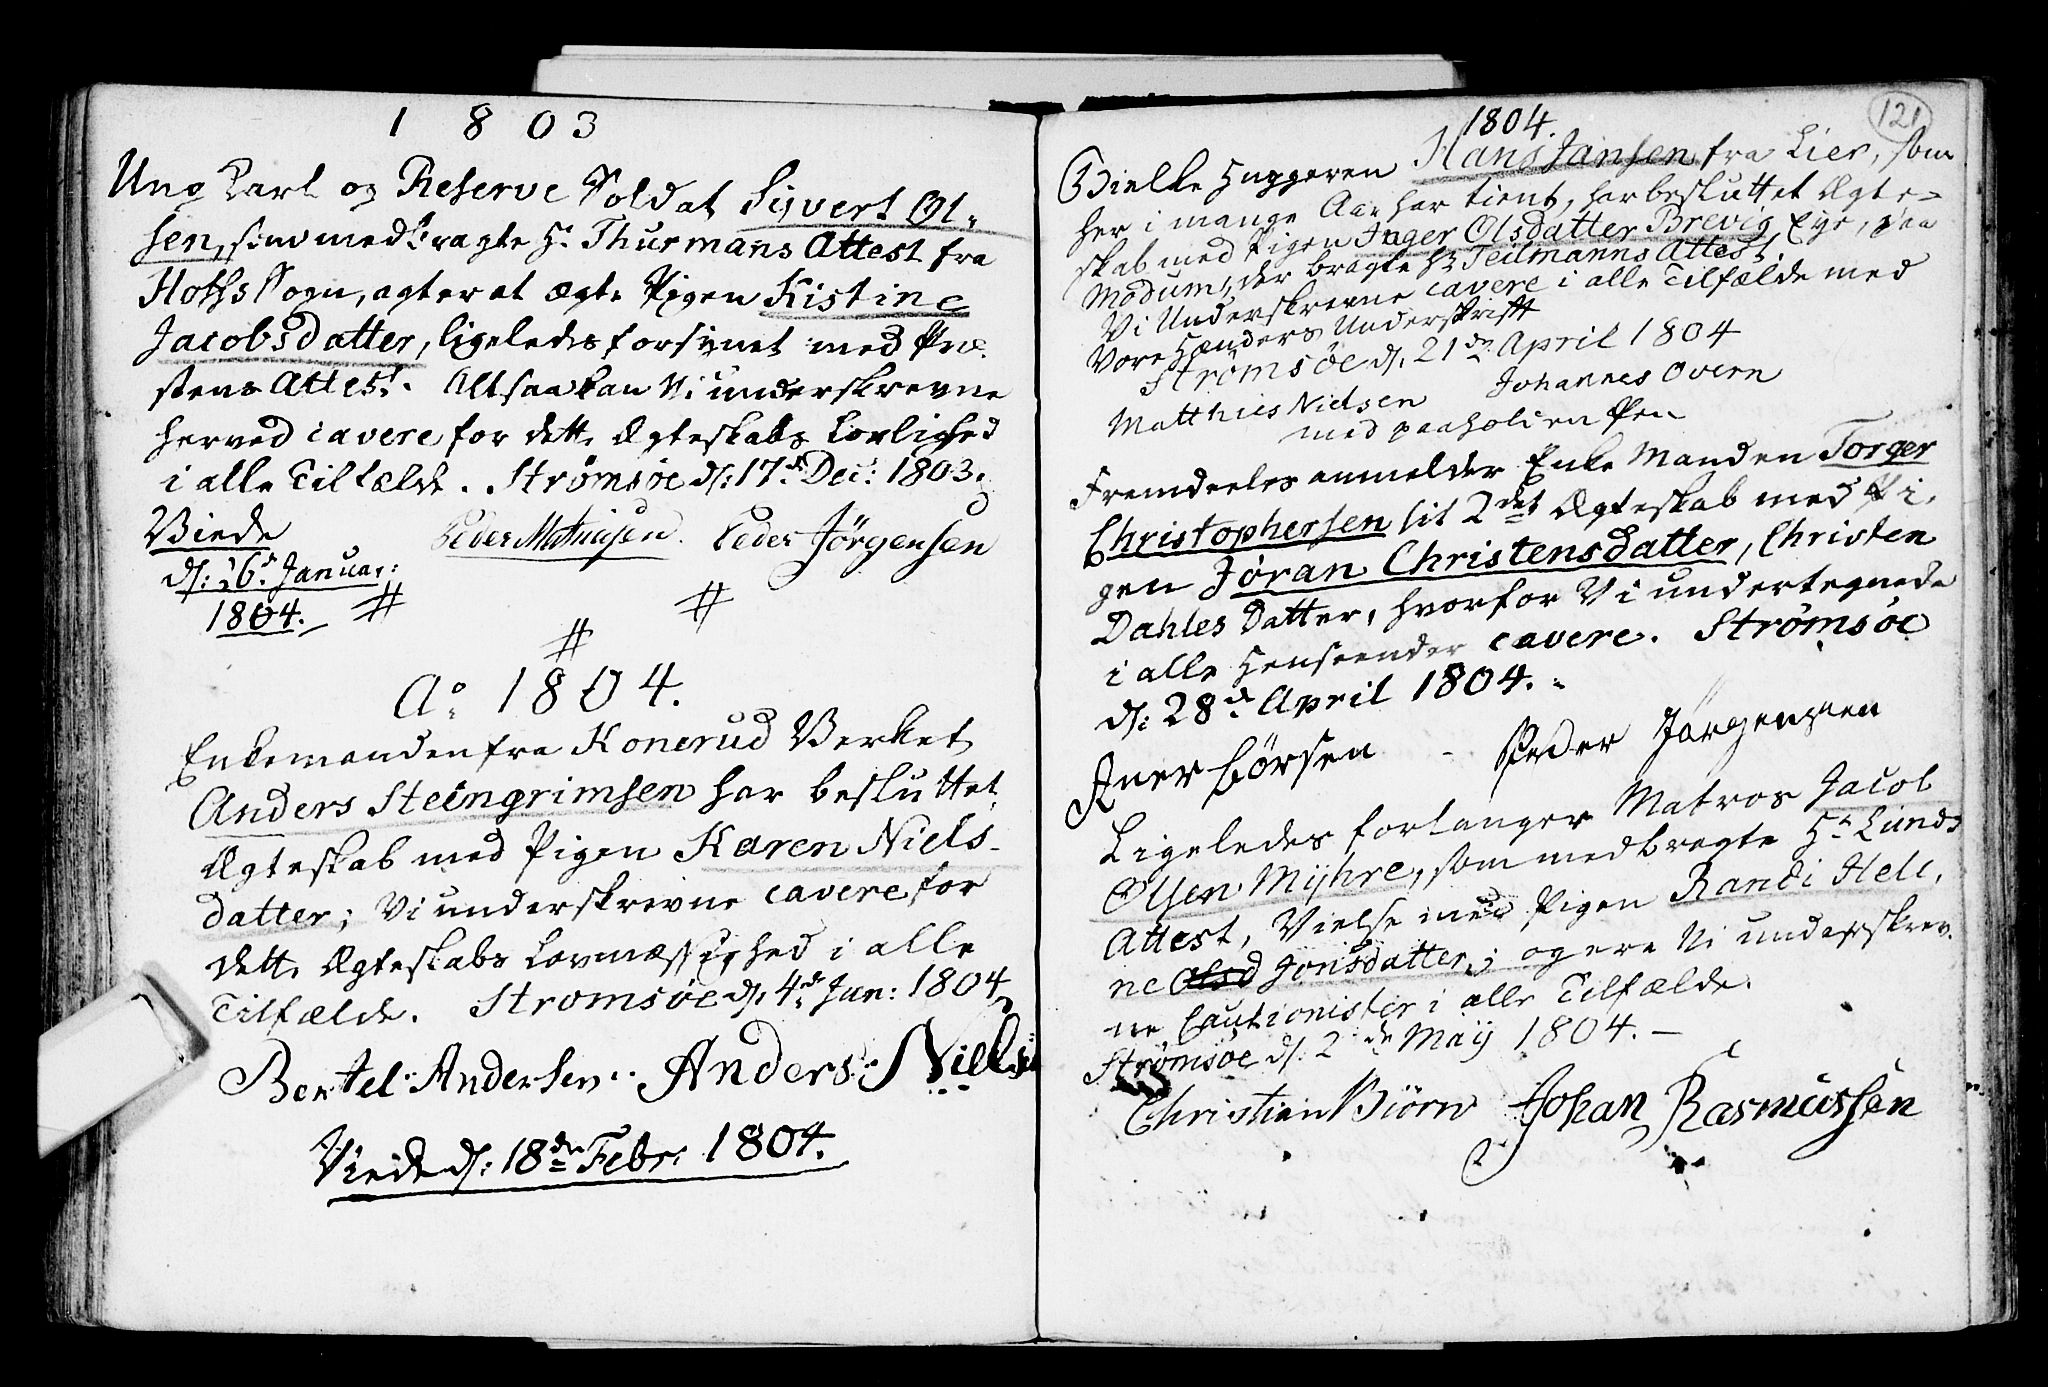 1803
Ung Karl og Reserve Soldat Sijvert Ol-
sen, som medbragte Hr Thurmans Attest fra
Hofs Sogn, agter at ægte Pigen Kistine
Jacobsdatter, ligeledes forsynet med Præ-
stens Attest. Altsaa kan Vi underskrevne
herved cavere for dette Ægteskabs Lovlighed
i alle Tilfælde. Strømsøe d: 17de Dec: 1803.
Viede
d: 26de Januar:
1804.
Peder Mathisen Peder Jörgensen
Ao 1804.
Enkemanden fra Konerud Verket
Anders Steingrimsen har besluttet
Ægteskab med Pigen Karen Niels-
datter; Vi underskrevne cavere for
dette Ægteskabs Lovmæssighed i alle
Tilfælde. Stromsöe d: 4de Jan: 1804
Bentel Andersen Anders Niels
Viede d: 18de Febr: 1804.
121
1804.
Bielke Huggeren Hans Jansen fra Lier, som
her i mange Aar har tient, har besluttet Ægte-
skab med Pigen Inger Olsdatter Brevig Eye, paa
Modum, der bragte Hr Teilmanns Attest.
Vi Underskrevne cavere i alle Tilfælde med
Vore Hænders Underskrift
Strömsöe d: 21de April 1804
Matthies Nielsen Johannes Overn
med paaholden Pen
Fremdeeles anmelder Enke Manden Torger
Christophersen sit 2det Ægteskab med Pi-
gen Jöran Christensdatter, Christen
Dahles Datter, hvorfor Vi undertegnede
i alle Henseender cavere. Strömsöe
d: 28de April 1804.
Iver Börsen - Peder Jörgensen
Ligeledes forlanger Matros Jacob
Olsen Mijhre, som medbragte Hr Lunds
Attest, Vielse med Pigen Randi Hele-
ne Olsd Jonsdatter; og ere Vi underskrev-
ne Cautionister i alle Tilfælde.
Strömsöe d: 2de Maij 1804.-
Christian Biörn Johan Rasmussen